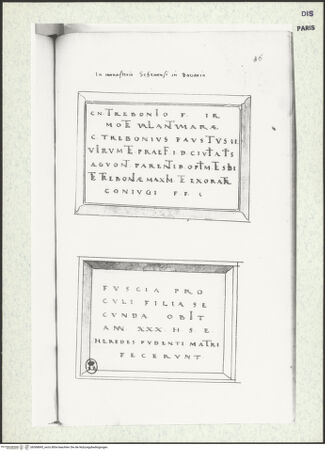 DIS
PARIS
In monasterio Seftenensi in Bavaria
CN. TREBONIO F. IR
C. TREBONIUS FAUSTUS II
VIRUM TE PRAEF I D CIVTATS
AGVONT. PARENTIB OPTM ET SBI
ET TREBONÆ MAXM
CONIUGI F F.
FUSCIA PRO
CULI FILIA SE
CUNDA OBIT
ANN XXX. H S E
HEREDES PUDENTI MATRI
FECERUNT